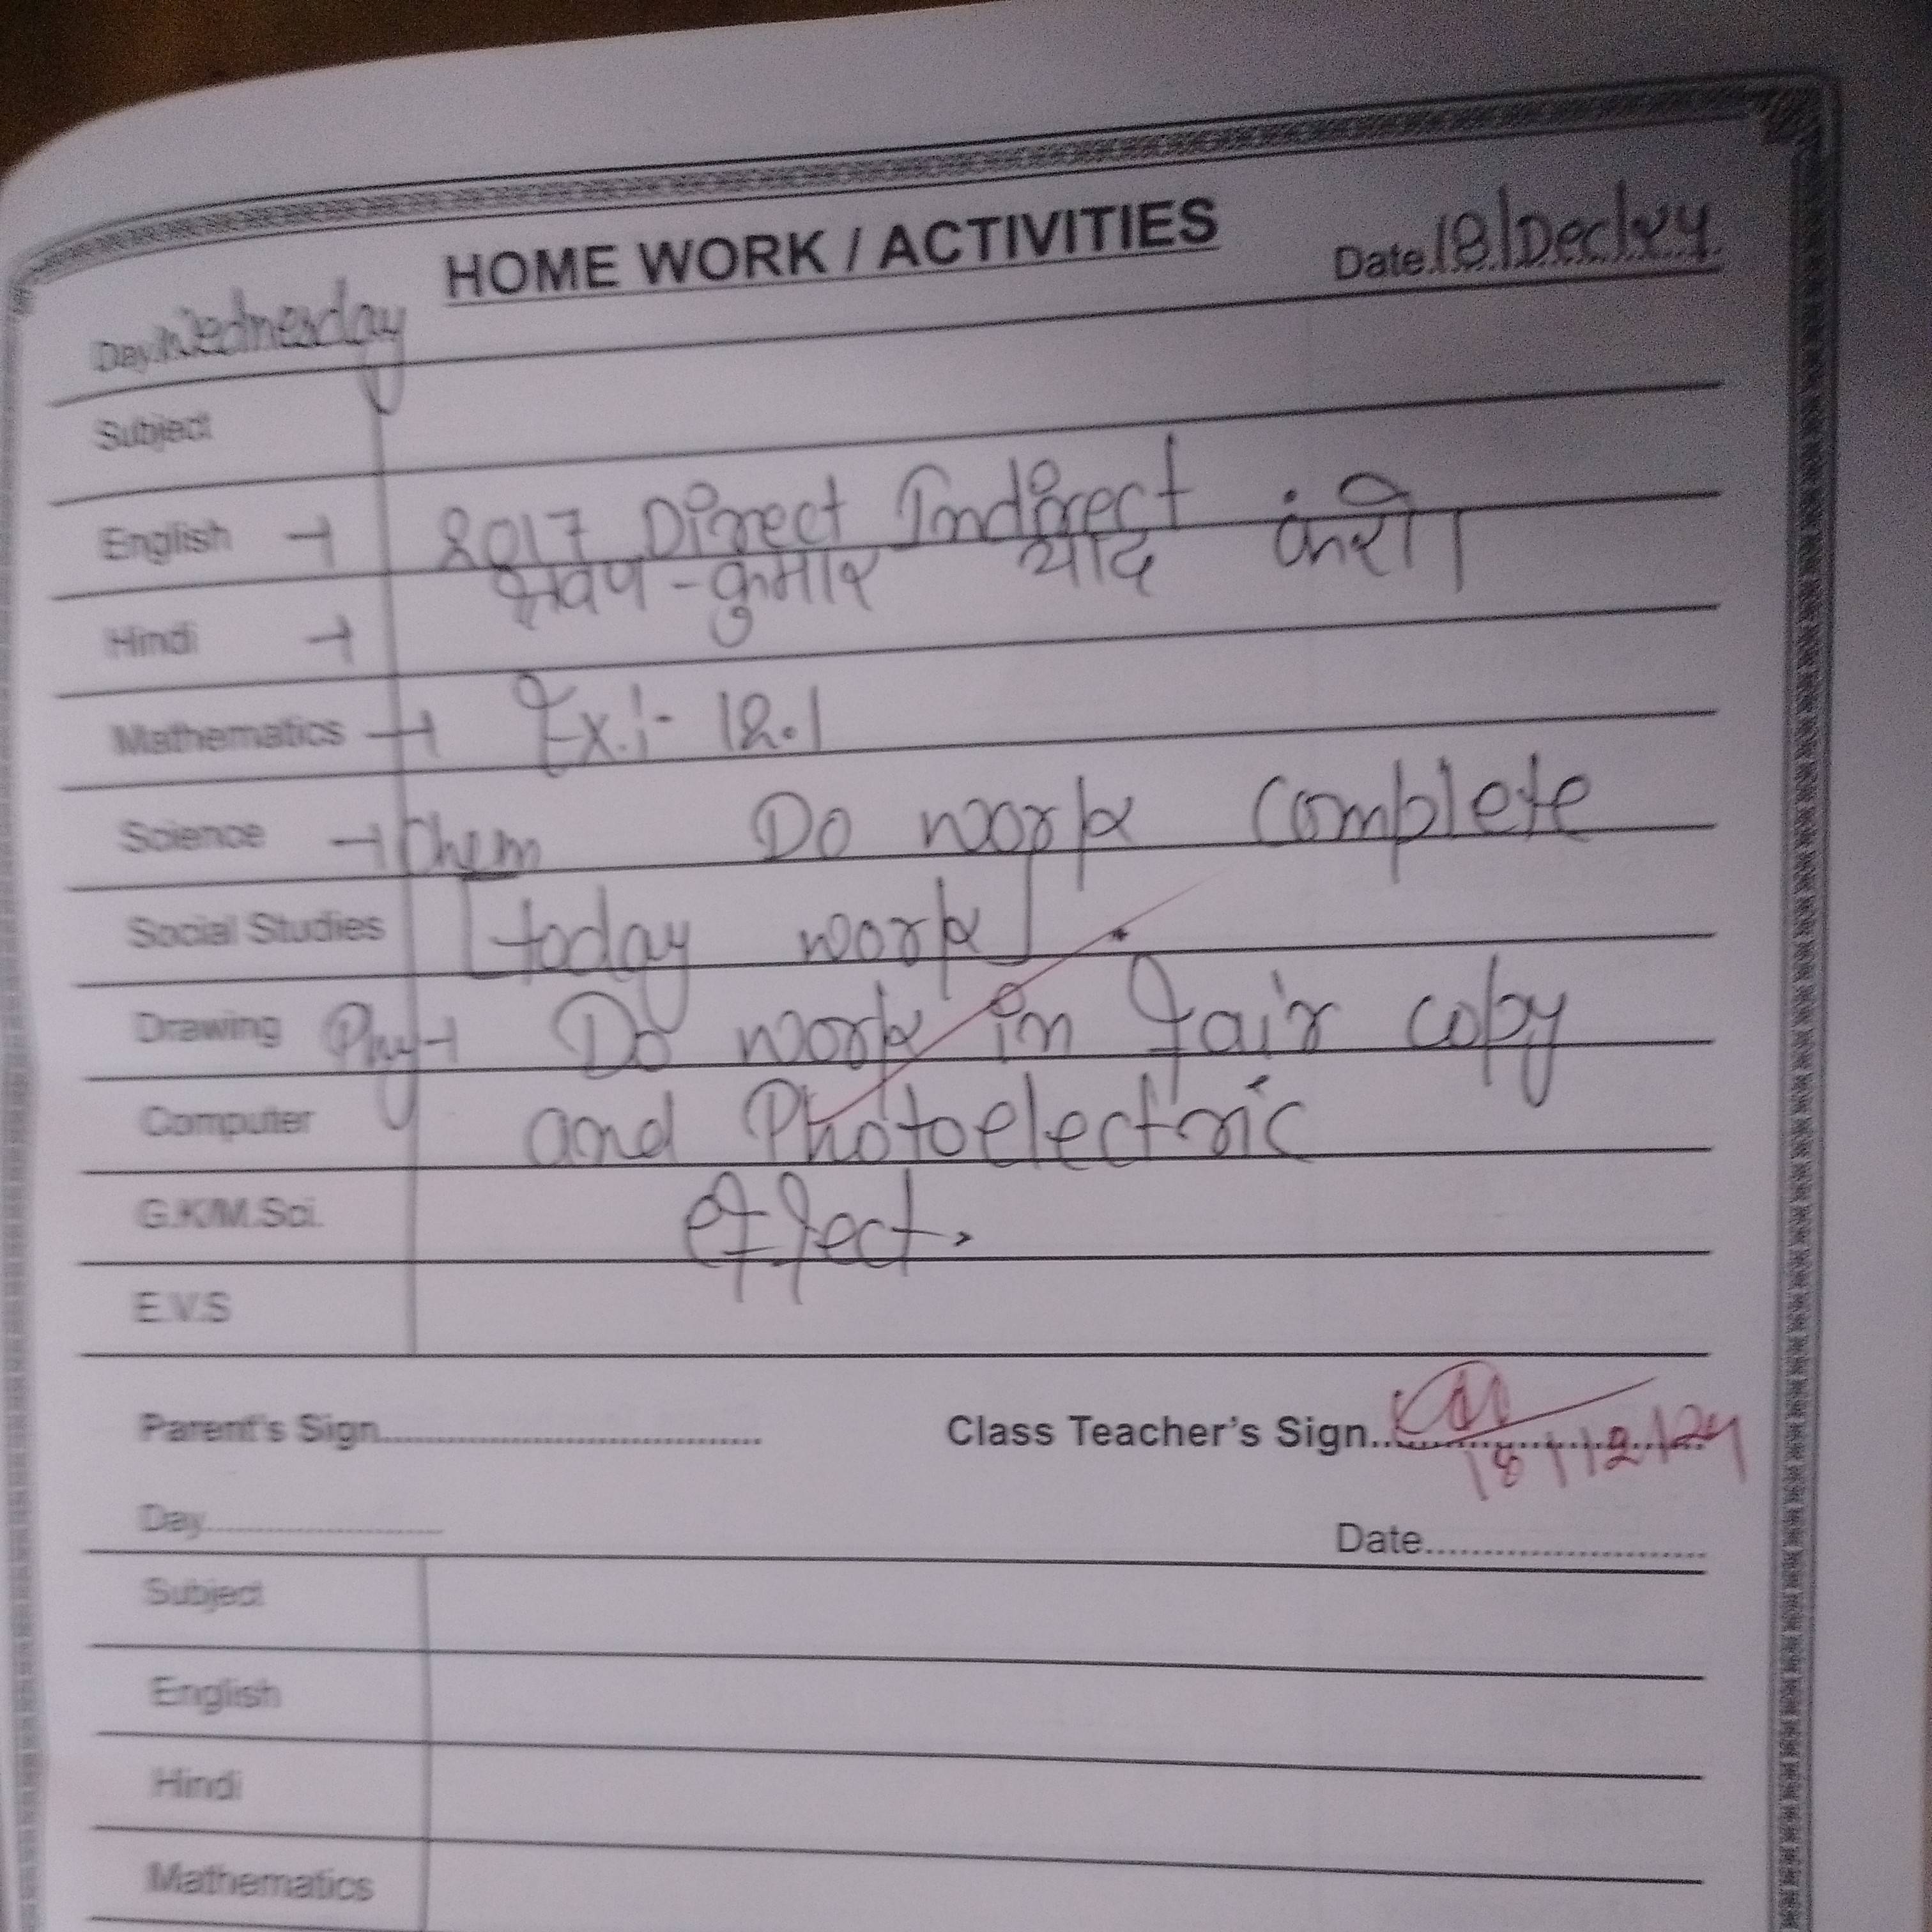 HOME WORK / ACTIVITIES
Day Wednesday Date 18/Dec/24
Subject
English → 2017 Direct Indirect
Hindi → श्रवण-कुमार याद करो।
Mathematics → Ex.:- 12.1
Science → Chem Do work complete
Social Studies [today work].
Drawing Phy → Do work in fair copy
Computer and Photoelectric
G.K/M.Sci. effect.
E.V.S
Parent's Sign Class Teacher's Sign 18/12/24
Day Date
Subject
English
Hindi
Mathematics